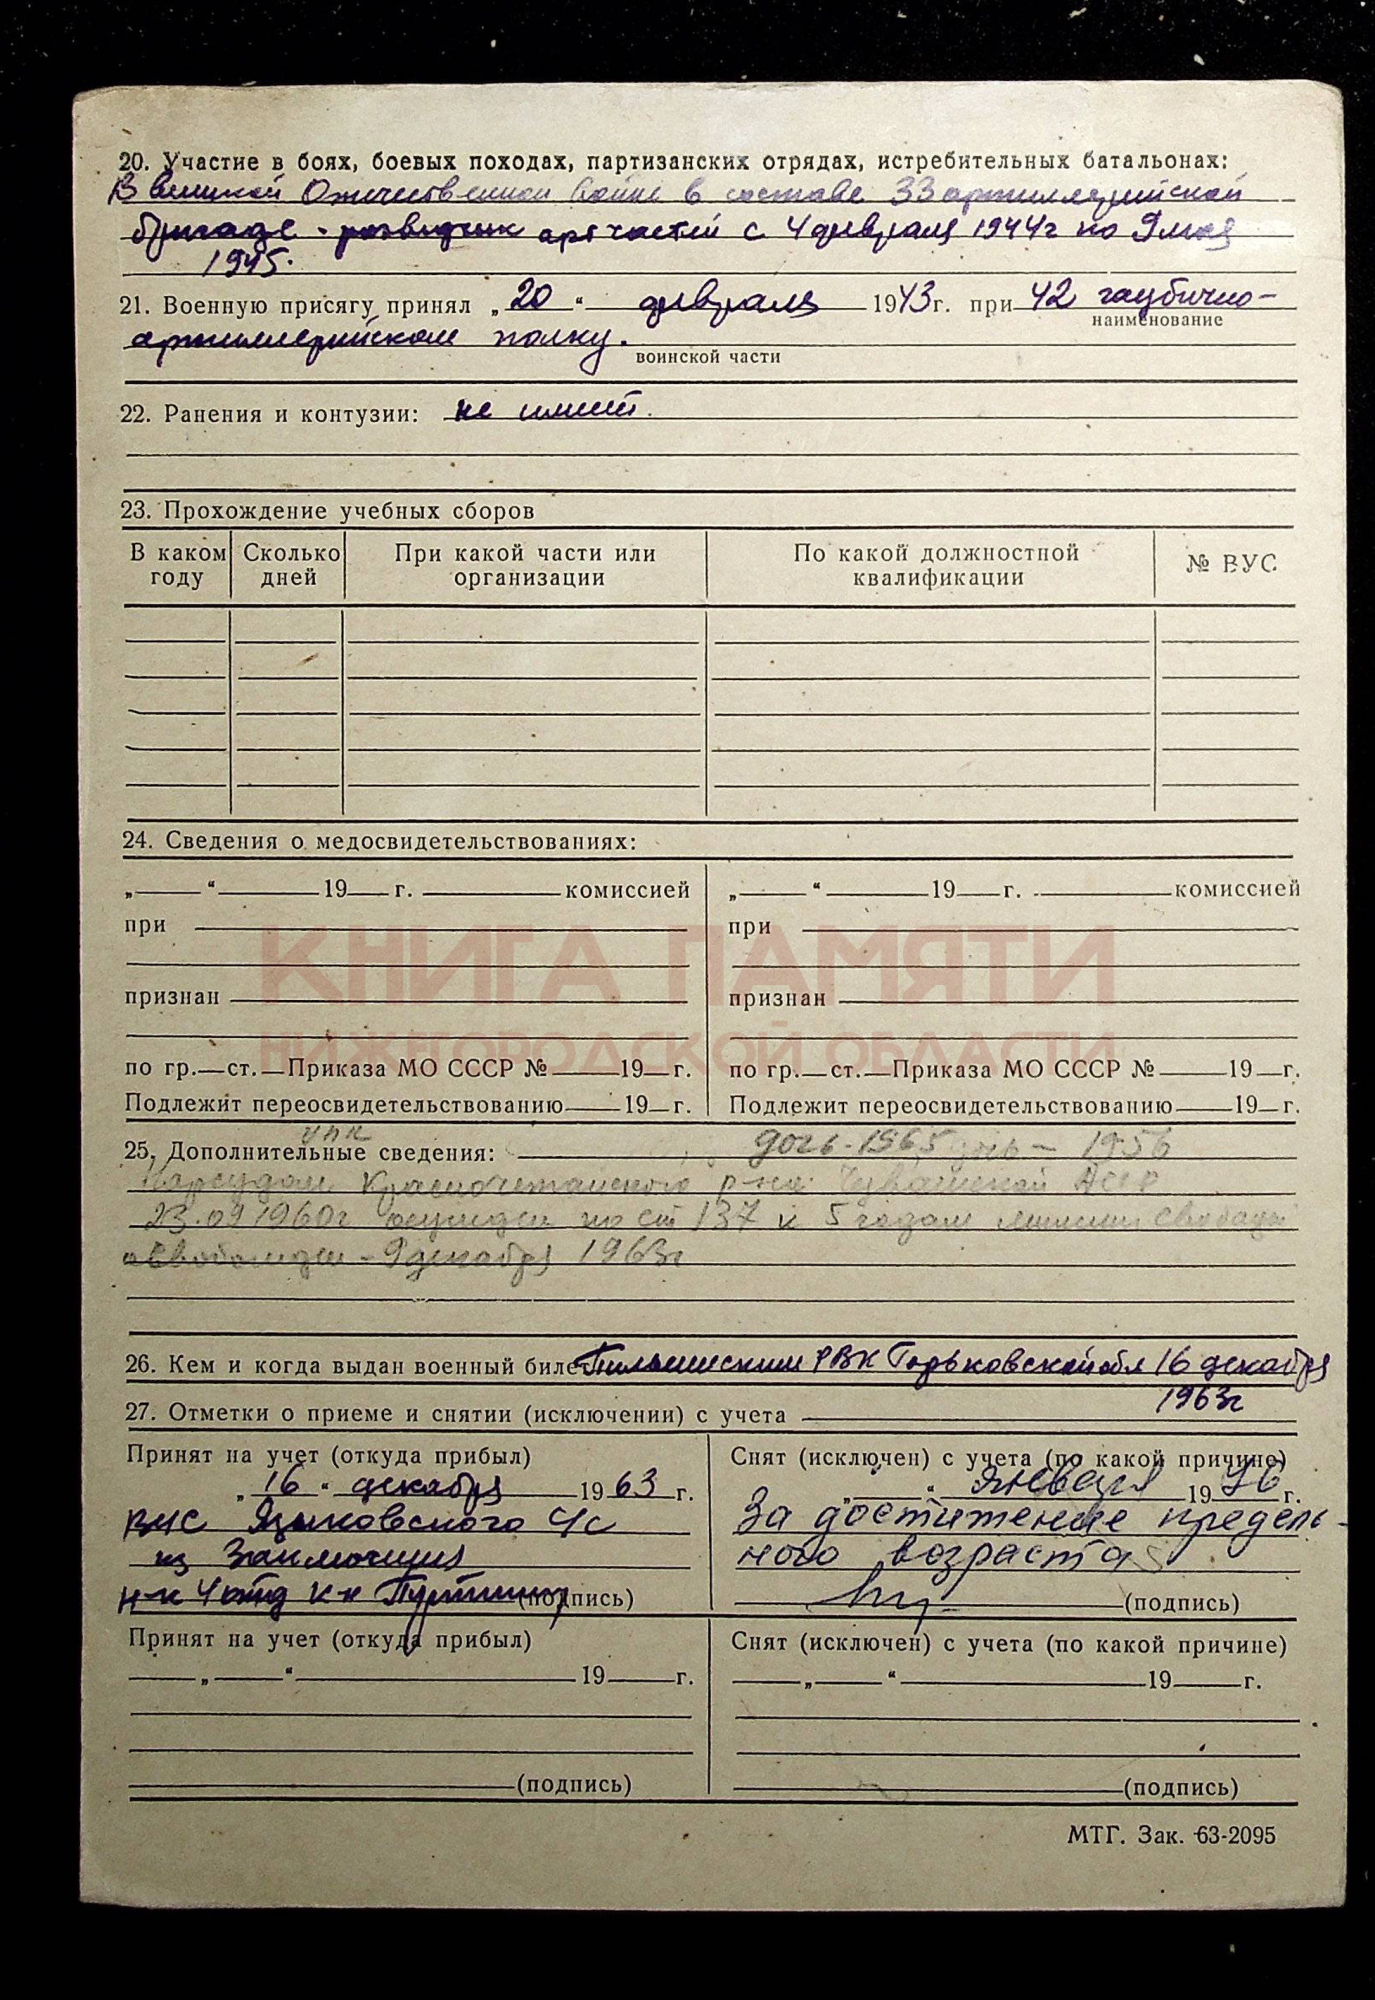 20. Участие в боях, боевых походах, партизанских отрядах, истребительных батальонах:
В великой Отечественной войне в составе 33 артиллерийской
бригаде - разведчик арт частей с 4 февраля 1944г по 9 мая
1945.
21. Военную присягу принял „20“ февраля 1943г. при 42 гаубично-
наименование
артиллерийском полку.
воинской части
22. Ранения и контузии: не имеет.
23. Прохождение учебных сборов
В каком году Сколько дней При какой части или организации По какой должностной квалификации № ВУС
24. Сведения о медосвидетельствованиях:
„ “ 19 г. комиссией „ “ 19 г. комиссией
при при
КНИГА ПАМЯТИ
признан признан
НИЖЕГОРОДСКОЙ ОБЛАСТИ
по гр. ст. Приказа МО СССР № 19 г. по гр. ст. Приказа МО СССР № 19 г.
Подлежит переосвидетельствованию 19 г. Подлежит переосвидетельствованию 19 г.
25. Дополнительные сведения: дочь - 1965 дочь - 1956
Нарсудом Красночетайского р-на Чувашской АССР
23.09 1960г осужден по ст 137 к 5 годам лишения свободы
освобожден - 9 декабря 1963г
26. Кем и когда выдан военный билет Пильнинским РВК Горьковской обл 16 декабря
1963г
27. Отметки о приеме и снятии (исключении) с учета
Принят на учет (откуда прибыл) Снят (исключен) с учета (по какой причине)
„16“ декабря 1963г. „ “ января 1976г.
ВУС Языковского с/с За достижение предель-
из Заключения ного возраста
н-к 4 отд к-н (подпись) (подпись)
Принят на учет (откуда прибыл) Снят (исключен) с учета (по какой причине)
„ “ 19 г. „ “ 19 г.
(подпись) (подпись)
МТГ. Зак. 63-2095